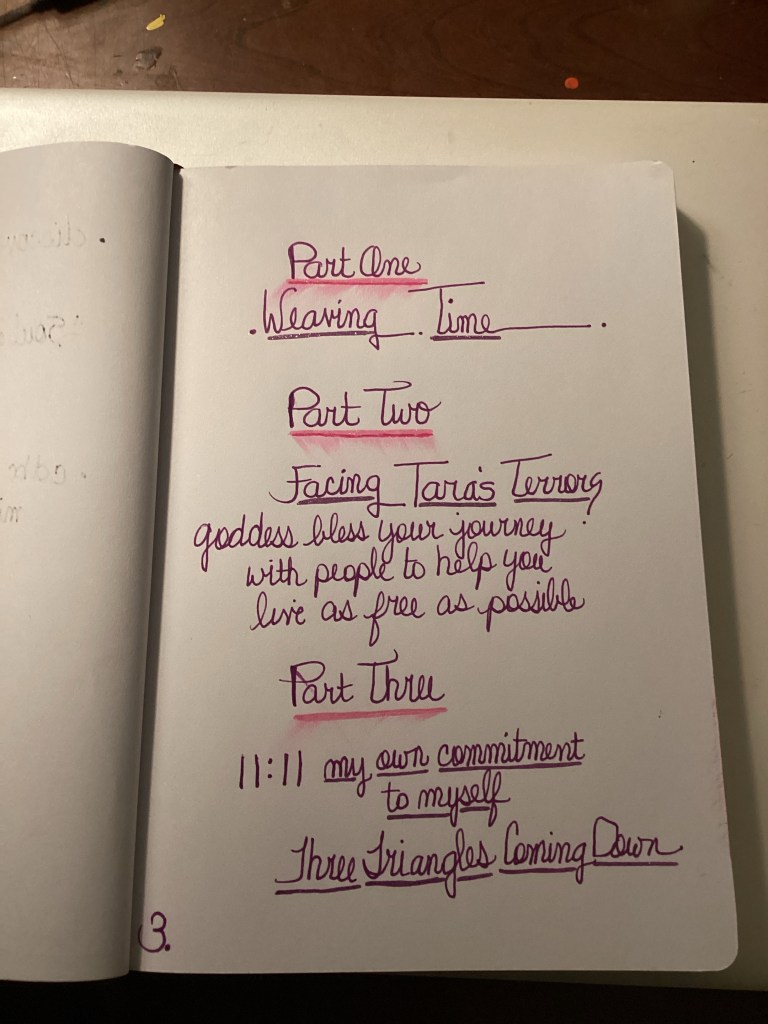 Part One
. Weaving . Time .
Part Two
Facing Tara's Terrors
goddess bless your journey
with people to help you
live as free as possible
Part Three
11:11 my own commitment
to myself
Three Triangles Coming Down
3.